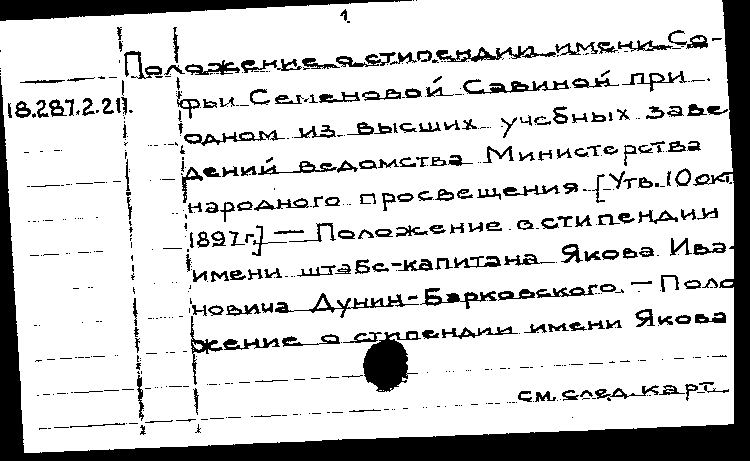 1.
Положение о стипендии имени Со-
18.287.2.211. фьи Семеновой Савиной при
одном из высших учебных заве
дений ведомства Министерства
народного просвещения. [Утв. 10 окт
1897 г.] — Положение о стипендии
имени штабс-капитана Якова Ива-
новича Дунин-Барковского. — Поло
жение о стипендии имени Якова
см. след. карт.